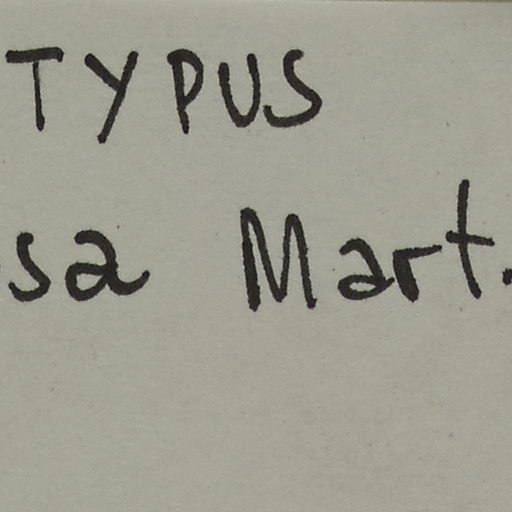 TYPUS
sa Mart.